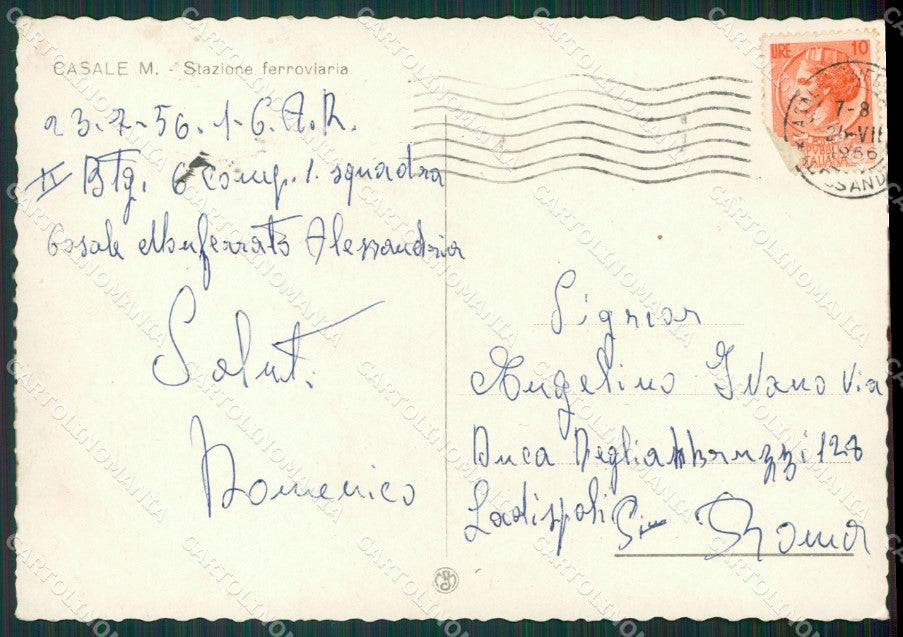 CASALE M. - Stazione ferroviaria
23-7-56. 1-C.A.R.
II Btg. 6 comp. 1. squadra
Casale Monferrato Alessandria
Saluti
Domenico
LIRE 10
7-8
1956
ITALIANA
Signor
Angelino Ivano Via
Duca Degli Abbruzzi 128
Ladispoli
Roma
CARTOLINOMANIA